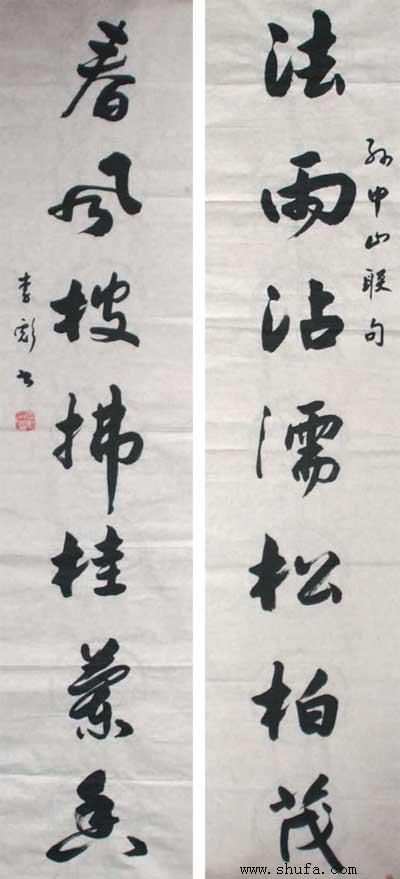 孫中山联句
法雨沾濡松柏茂
春风披拂桂蘭香
李彪书
www.shufa.com